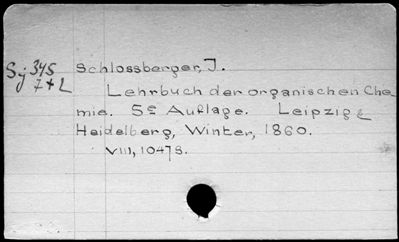 Sy 345 Schlossberger, J.
7+L
Lehrbuch der organischen Che-
mie. 5e Auflage. Leipzig &
Heidelberg, Winter, 1860.
VIII, 1047 S.